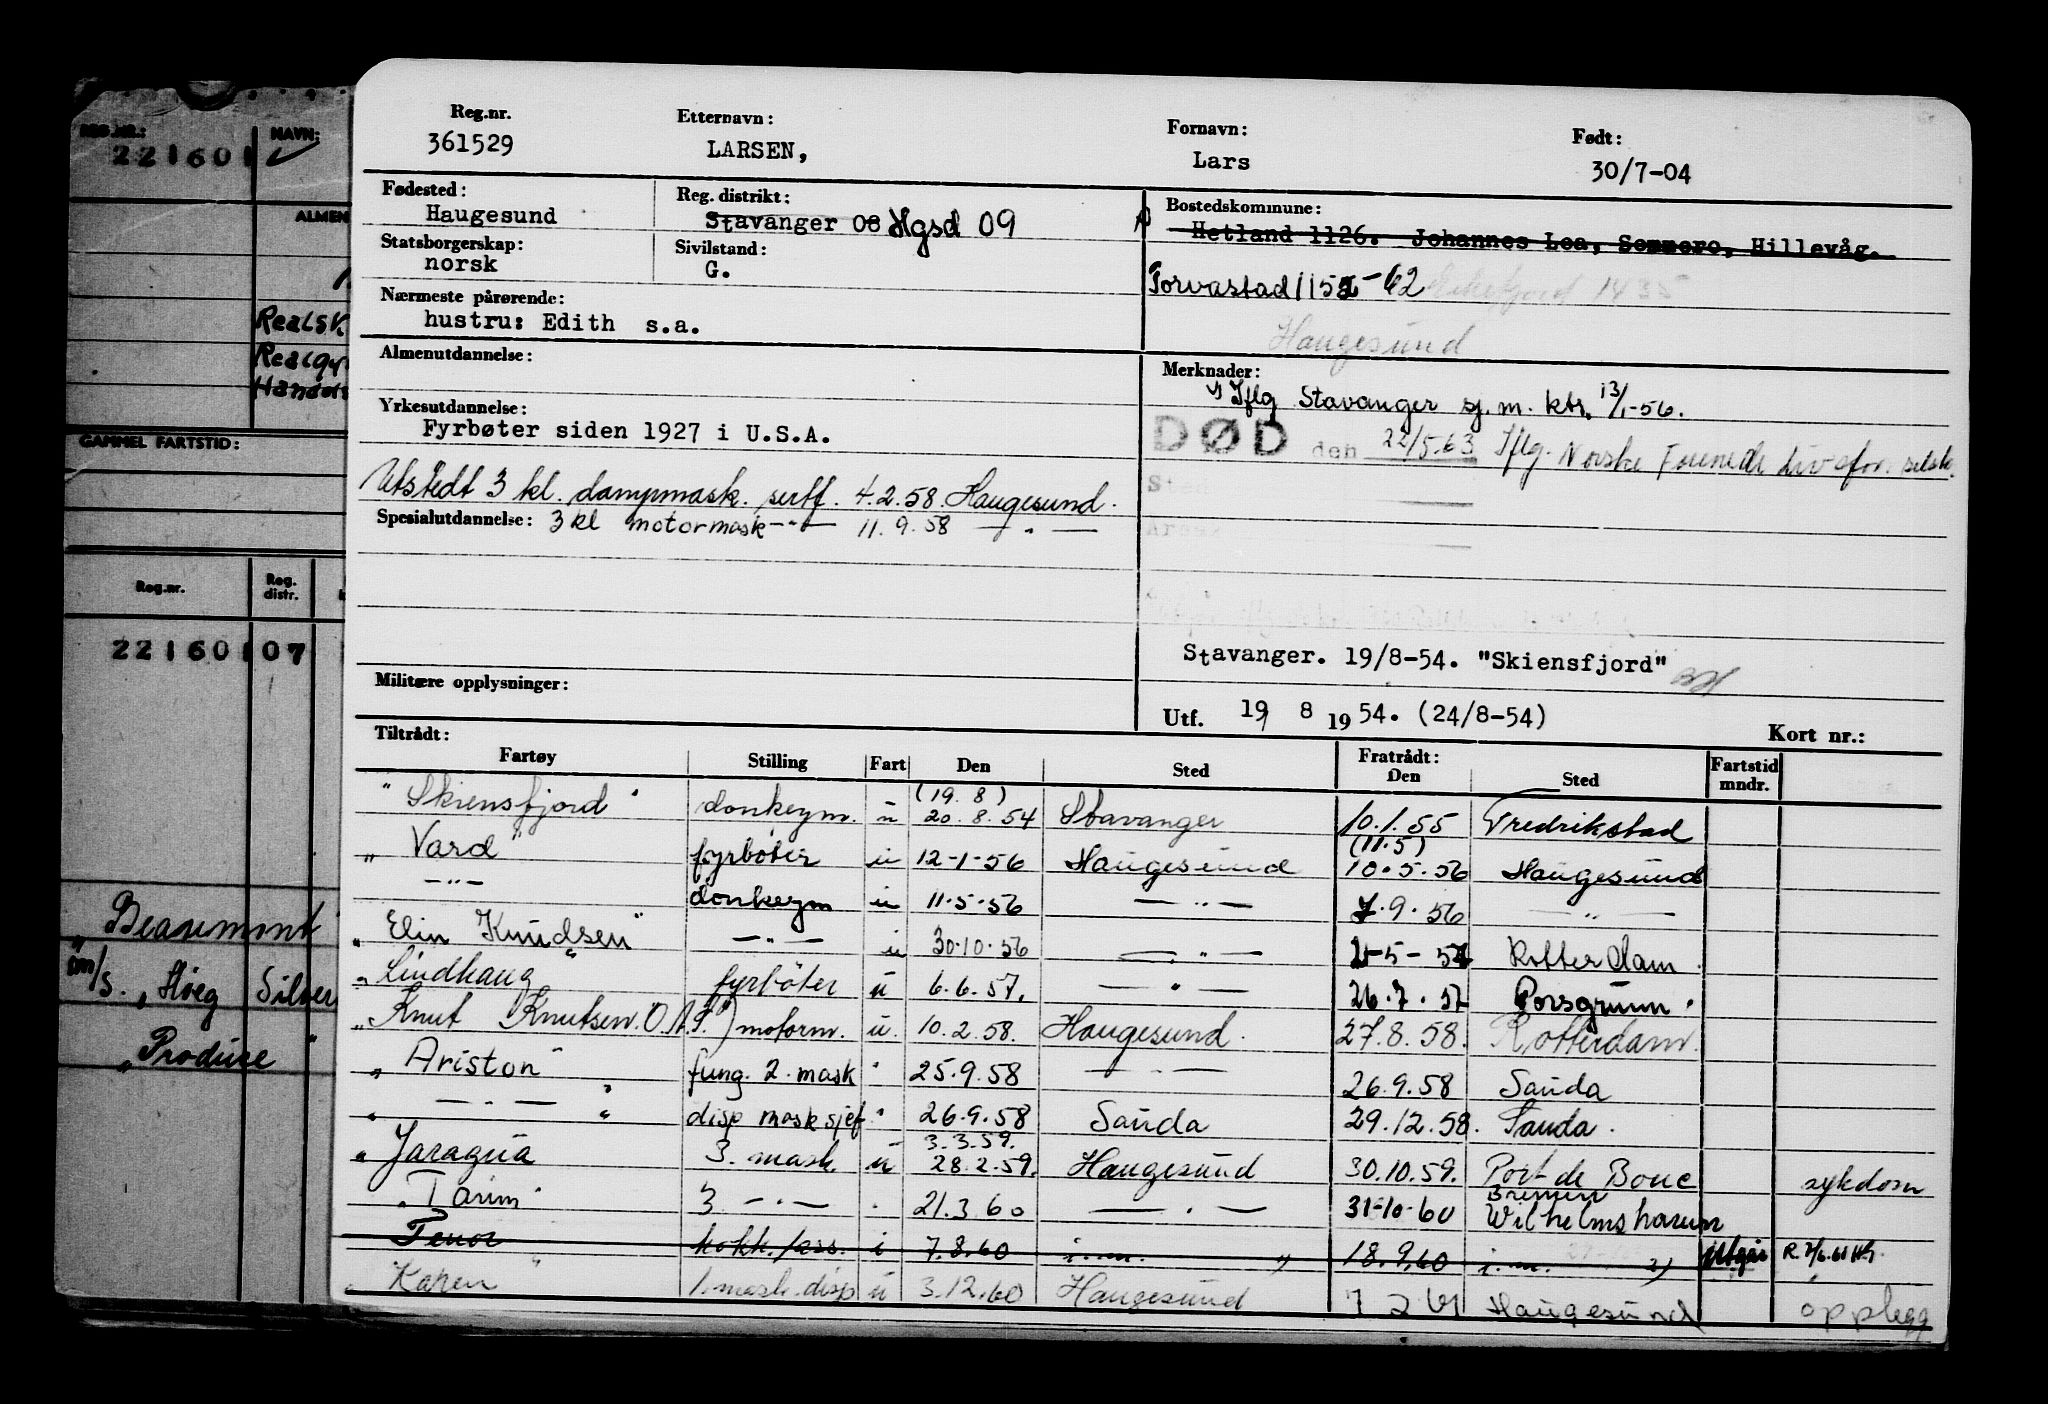 REG.NR.: NAVN:
221601
ALMEN
Realsk.
GAMMEL FARTSTID:
Reg.nr. Reg. distr.
221601 07
" Beaumont "
m/s. " Høeg Silver
" Produse "
Reg.nr. Etternavn: Fornavn: Født:
361529 LARSEN, Lars 30/7-04
Fødested: Reg. distrikt: Bostedskommune:
Haugesund Stavanger 08 Hgsd 09 Hetland 1126. Johannes Loa, Sommero, Hillevåg.
Statsborgerskap: Sivilstand:
norsk G. Torvastad 1152-62
Nærmeste pårørende:
hustru: Edith s.a. Haugesund
Almenutdannelse: Merknader:
1) Iflg Stavanger sj.m. ktr. 13/1-56.
Yrkesutdannelse:
Fyrbøter siden 1927 i U.S.A. DØD den 22/5.63 Iflg. Norske Forenede Livsfor. selsk.
Utstedt 3 kl. dampmask. sertf. 4.2.58. Haugesund.
Spesialutdannelse: 3 kl motormask -"- 11.9.58 - " -
Stavanger. 19/8-54. "Skiensfjord"
Militære opplysninger:
Utf. 19/ 8 1954. (24/8-54) Kort nr.:
Tiltrådt: Fratrådt:
Fartøy Stilling Fart Den Sted Den Sted Fartstid mndr.
(19.8)
"Skiensfjord" donkeym. u 20.8.54 Stavanger 10.1.55 Fredrikstad
(11.5)
" Vard " fyrbøter u 12-1-56 Haugesund 10.5.56 Haugesund
-"- donkeym u 11.5.56 - " - 7.9.56 - " -
" Elin Knudsen " - " - u 30.10.56 - " - Rotterdam
" Lindhaug " fyrbøter u 6.6.57. - " - 26.7.57 Porsgrunn.
" Knut Knutsen O.A.S." motorm. u. 10.2.58. Haugesund. 27.8.58. Rotterdam.
" Ariston " fung. 2. mask " 25.9.58 - " - 26.9.58 Sauda
" - " - " disp masksjef " 26.9.58 Sauda 29.12.58. Sauda.
3.3.59.
" Jaragua 3. mask u 28.2.59. Haugesund 30.10.59. Port de Bouc sykdom
Bremen
"Tarim" 3 - " - . 21.3.60 - " - 31-10-60 Wilhelmshaven
Tenor " kokk./ass. i 7.8.60 i.m. " 18.9.60 i.m. utgår
" Karen 1. mask. disp u 3.12.60 Haugesund 7 2 61 Haugesund opplegg